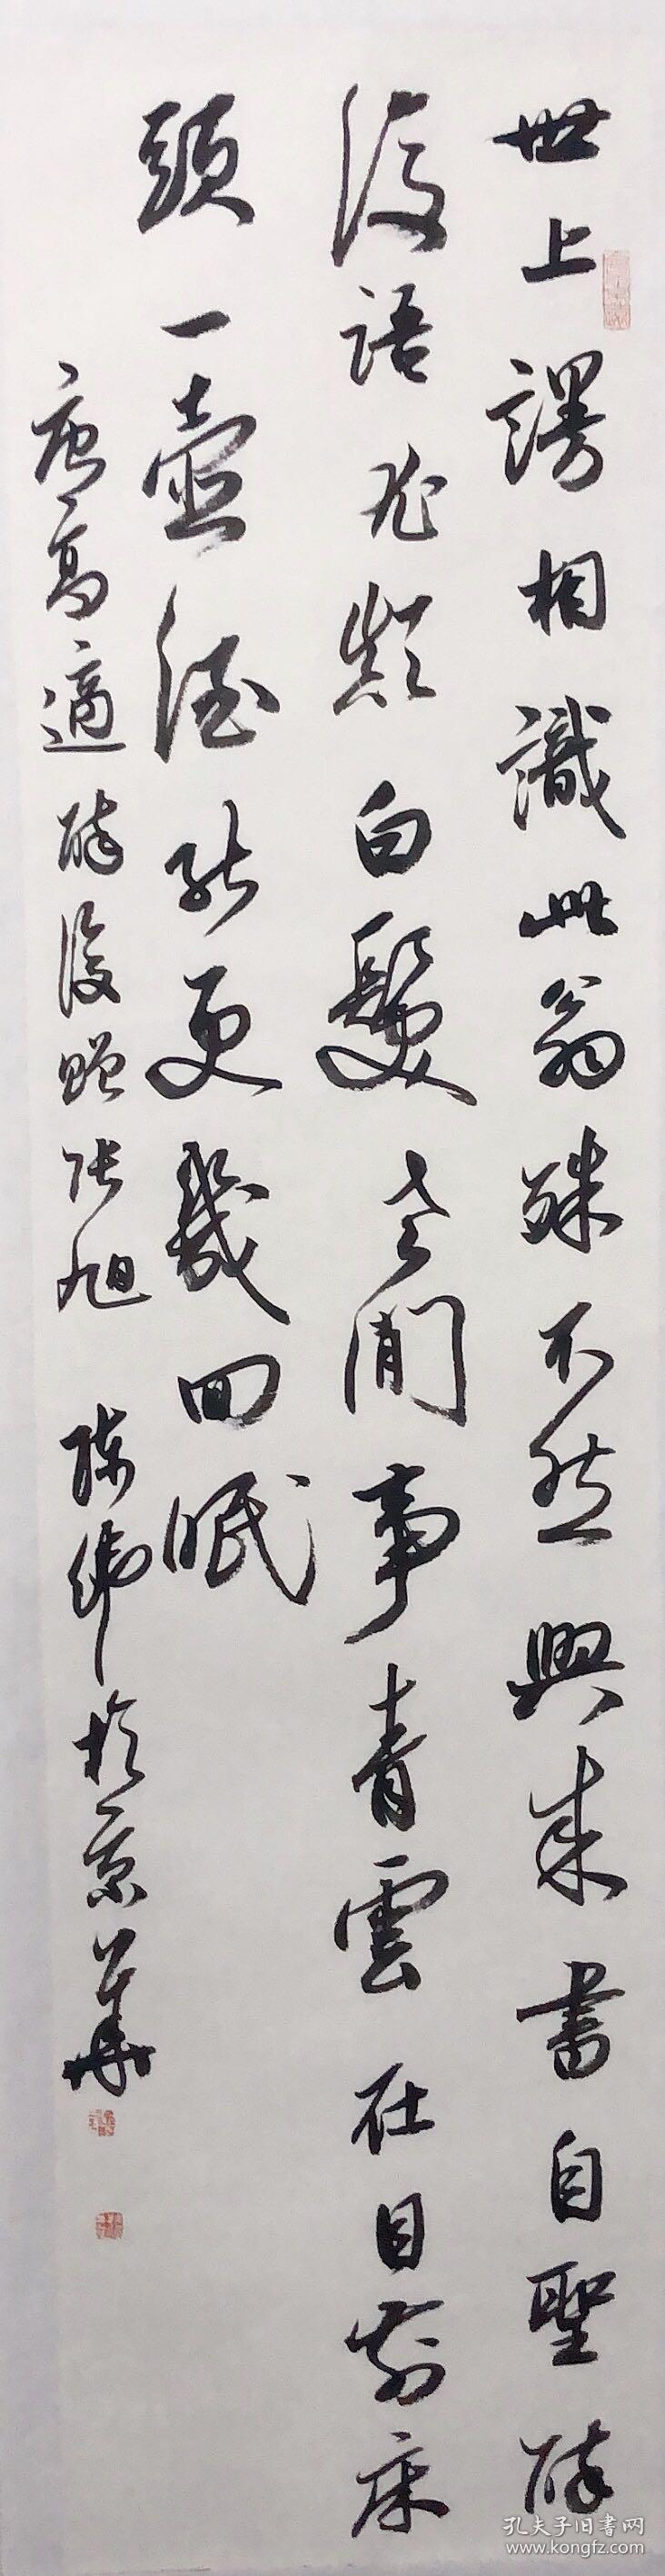 世上謾相識此翁殊不然興來書自聖醉
後語尤顛白髮老閒事青雲在目前床
頭一壺酒能更幾回眠
唐高適醉後贈張旭 陳偉於京華
孔夫子旧書网
www.kongfz.com